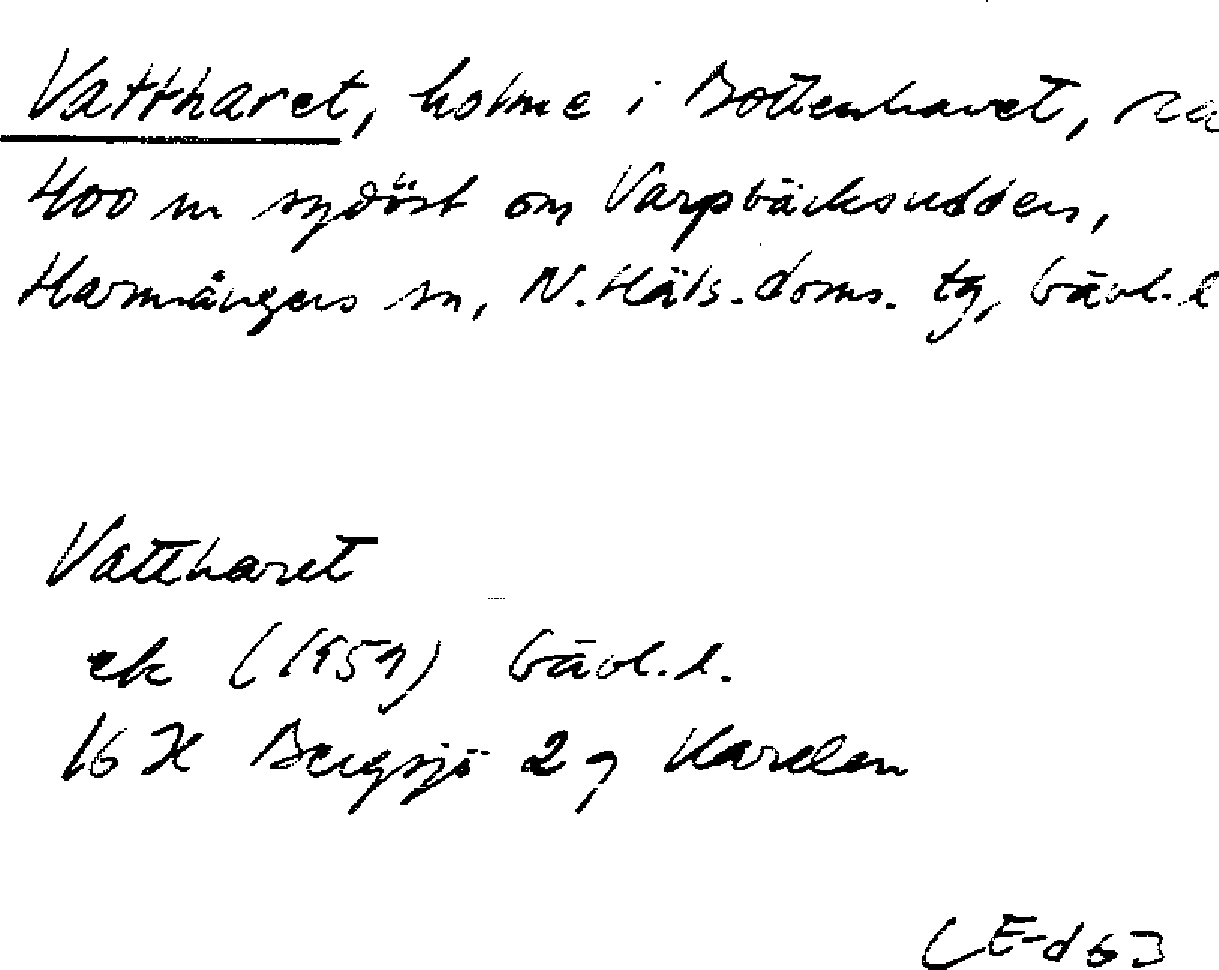 Vattharet, holme i Bottenhavet, ca
400 m sydöst om Varpbäcksudden,
Harmångers sn, N. Häls. doms. tg, Gävl. l
Vattharet
ek (1959) Gävl. l.
16 H Bergsjö 2 g Harelen
LE-d 63